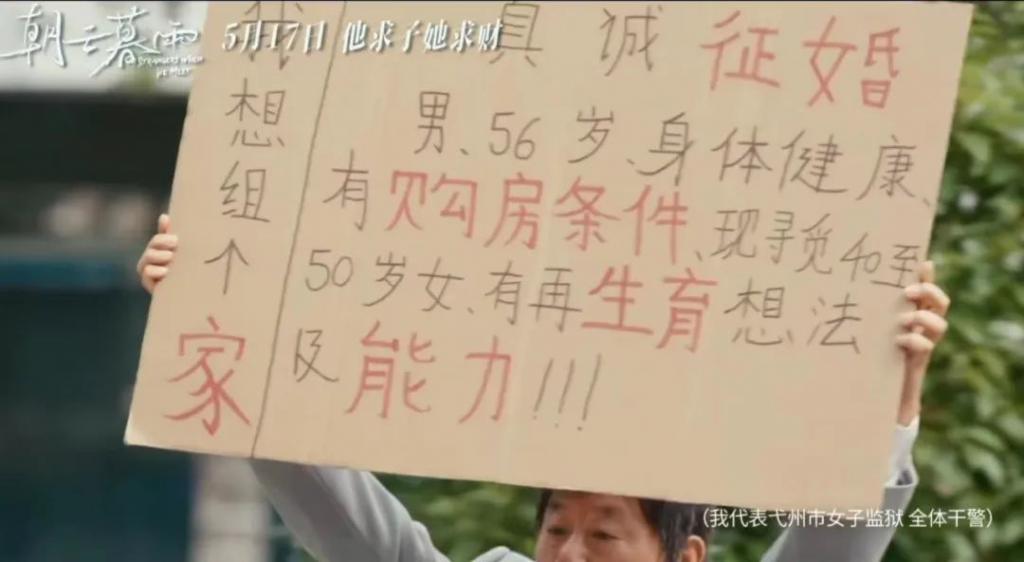 朝云暮雨
5月17日 他求子她求财
我想组个家
真诚征婚
男、56岁、身体健康、
有购房条件、现寻觅40至
50岁女、有再生育想法
及能力!!!
(我代表弋州市女子监狱 全体干警)